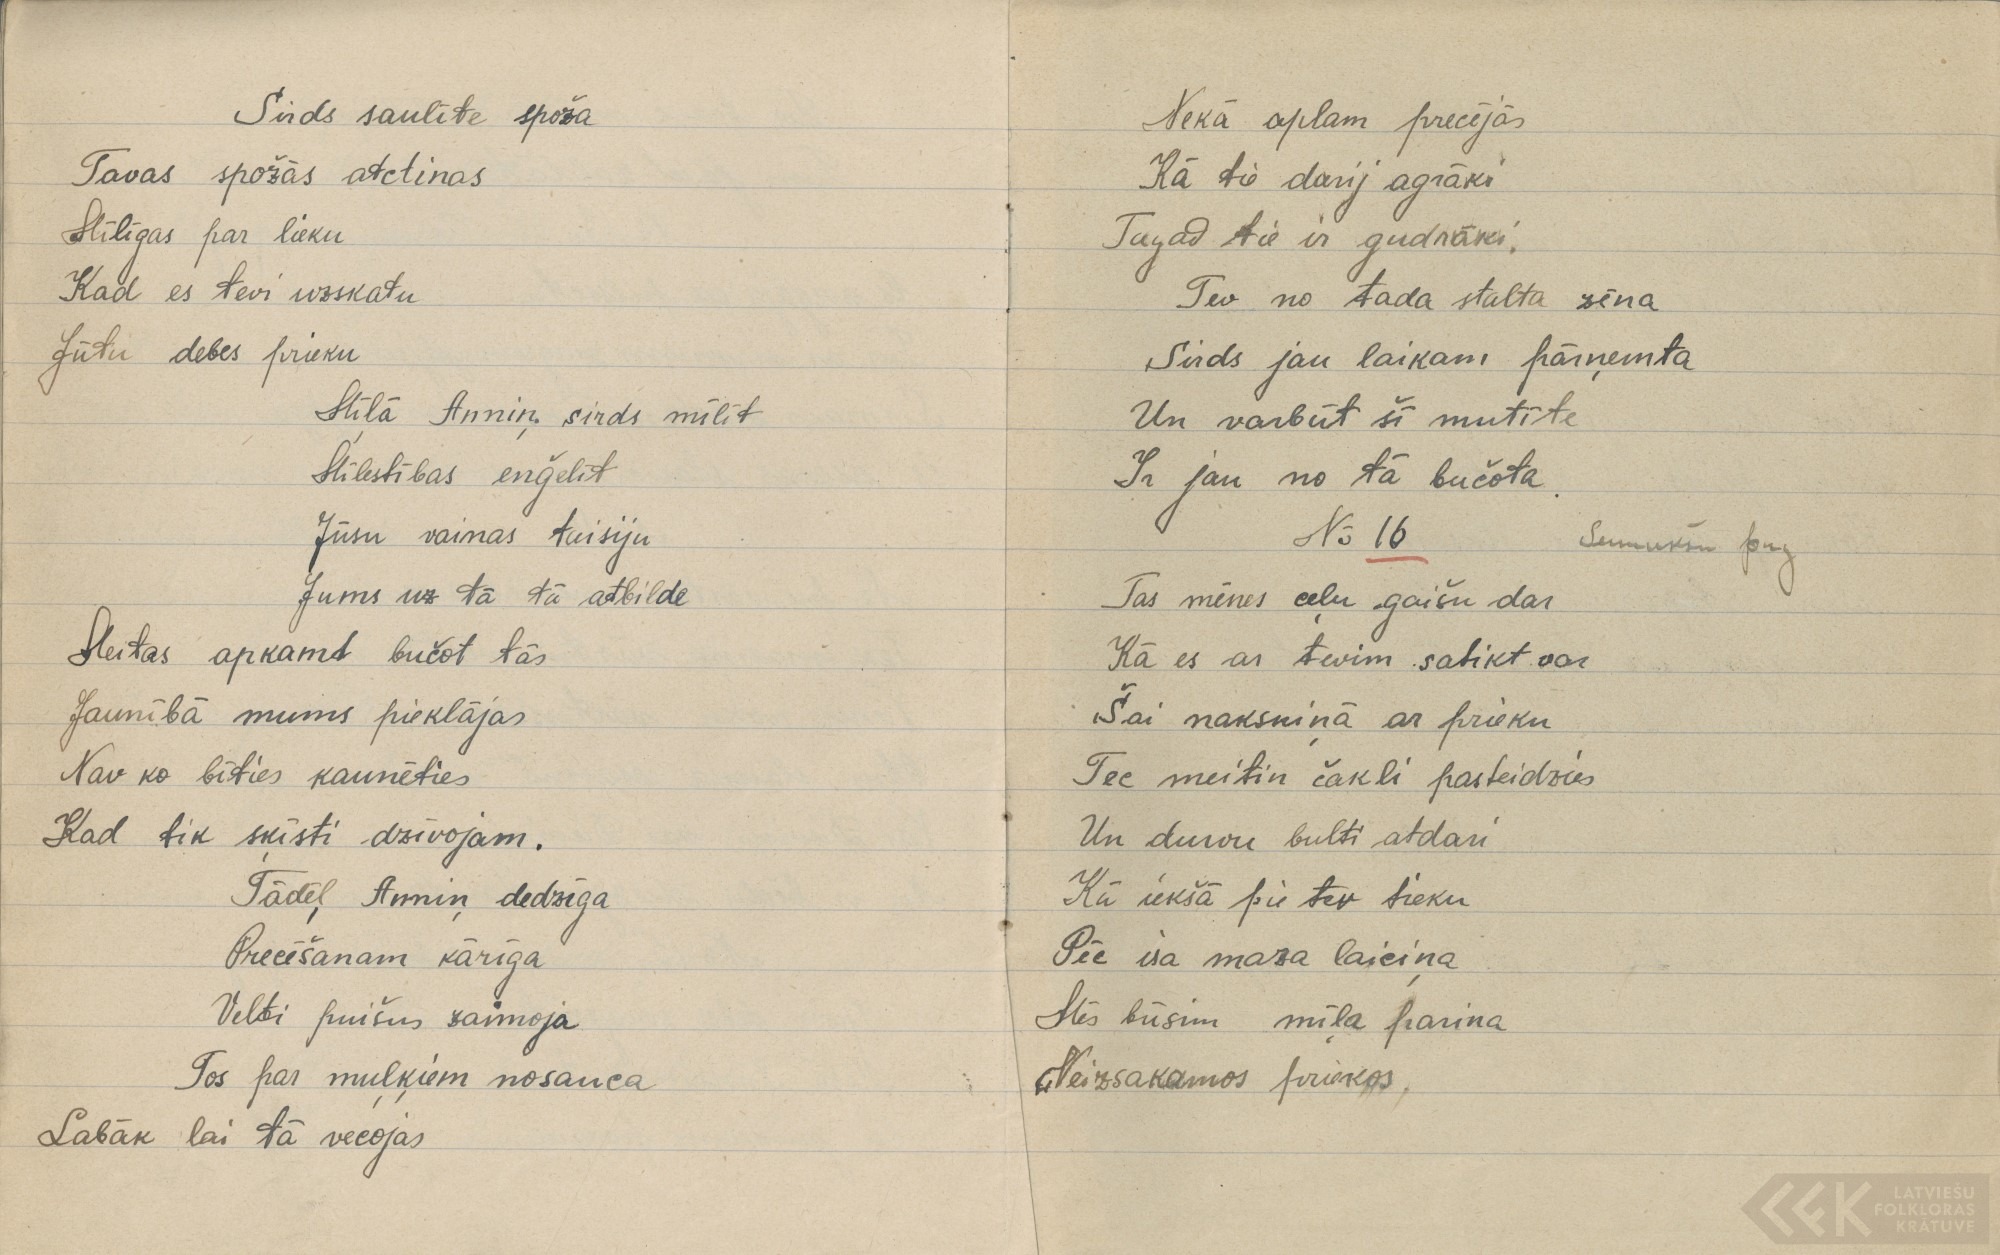 Sirds saulīte spoža
Tavas spožās actinas
Mīlīgas par lieku
Kad es tevi uzskatu
Jūtu debes prieku
Mīļā Anniņ sirds mīlīt
Mīlestības enģelīt
Jūsu vainas taisiju
Jums uz tā tā atbilde
Meitas apkamt bučot tās
Jaunībā mums pieklājas
Nav ko bīties kaunēties
Kad tik šķīsti dzīvojam.
Tādēļ Anniņ dedzīga
Precēšanam kārīga
Velti puišus zaimoja
Tos par muļķiem nosauca
Labāk lai tā vecojas
Nekā aplam precējās
Kā tie darij agrāki
Tagad tie ir gudrāki.
Tev no tada stalta zēna
Sirds jau laikam pārņemta
Un varbūt šī mutīte
Ir jau no tā bučota.
No 16
Tas mēnes ceļu gaišu dar
Kā es ar tevim satikt var
Šai naksniņā ar prieku
Tec meitin čakli pasteidzies
Un durvu bulti atdari
Kā iekšā pie tev tieku
Pēc īsa maza laiciņa
Mēs būsim mīļa parina
Neizsakamos priekos,
LATVIEŠU
FOLKLORAS
KRĀTUVE